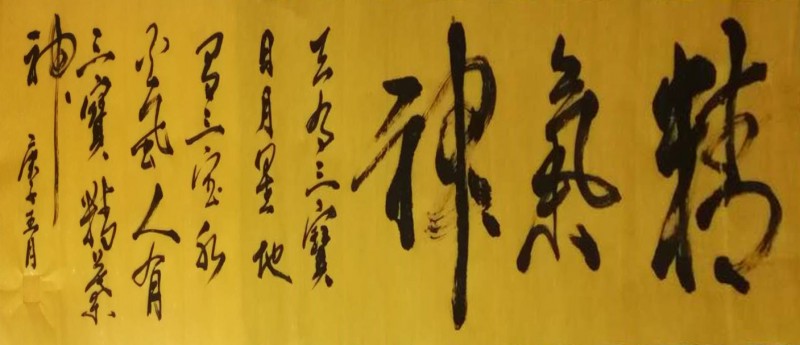 精
氣
神
天有三寶
日月星地
有三宝水
火風人有
三寶精氣
神
庚子五月